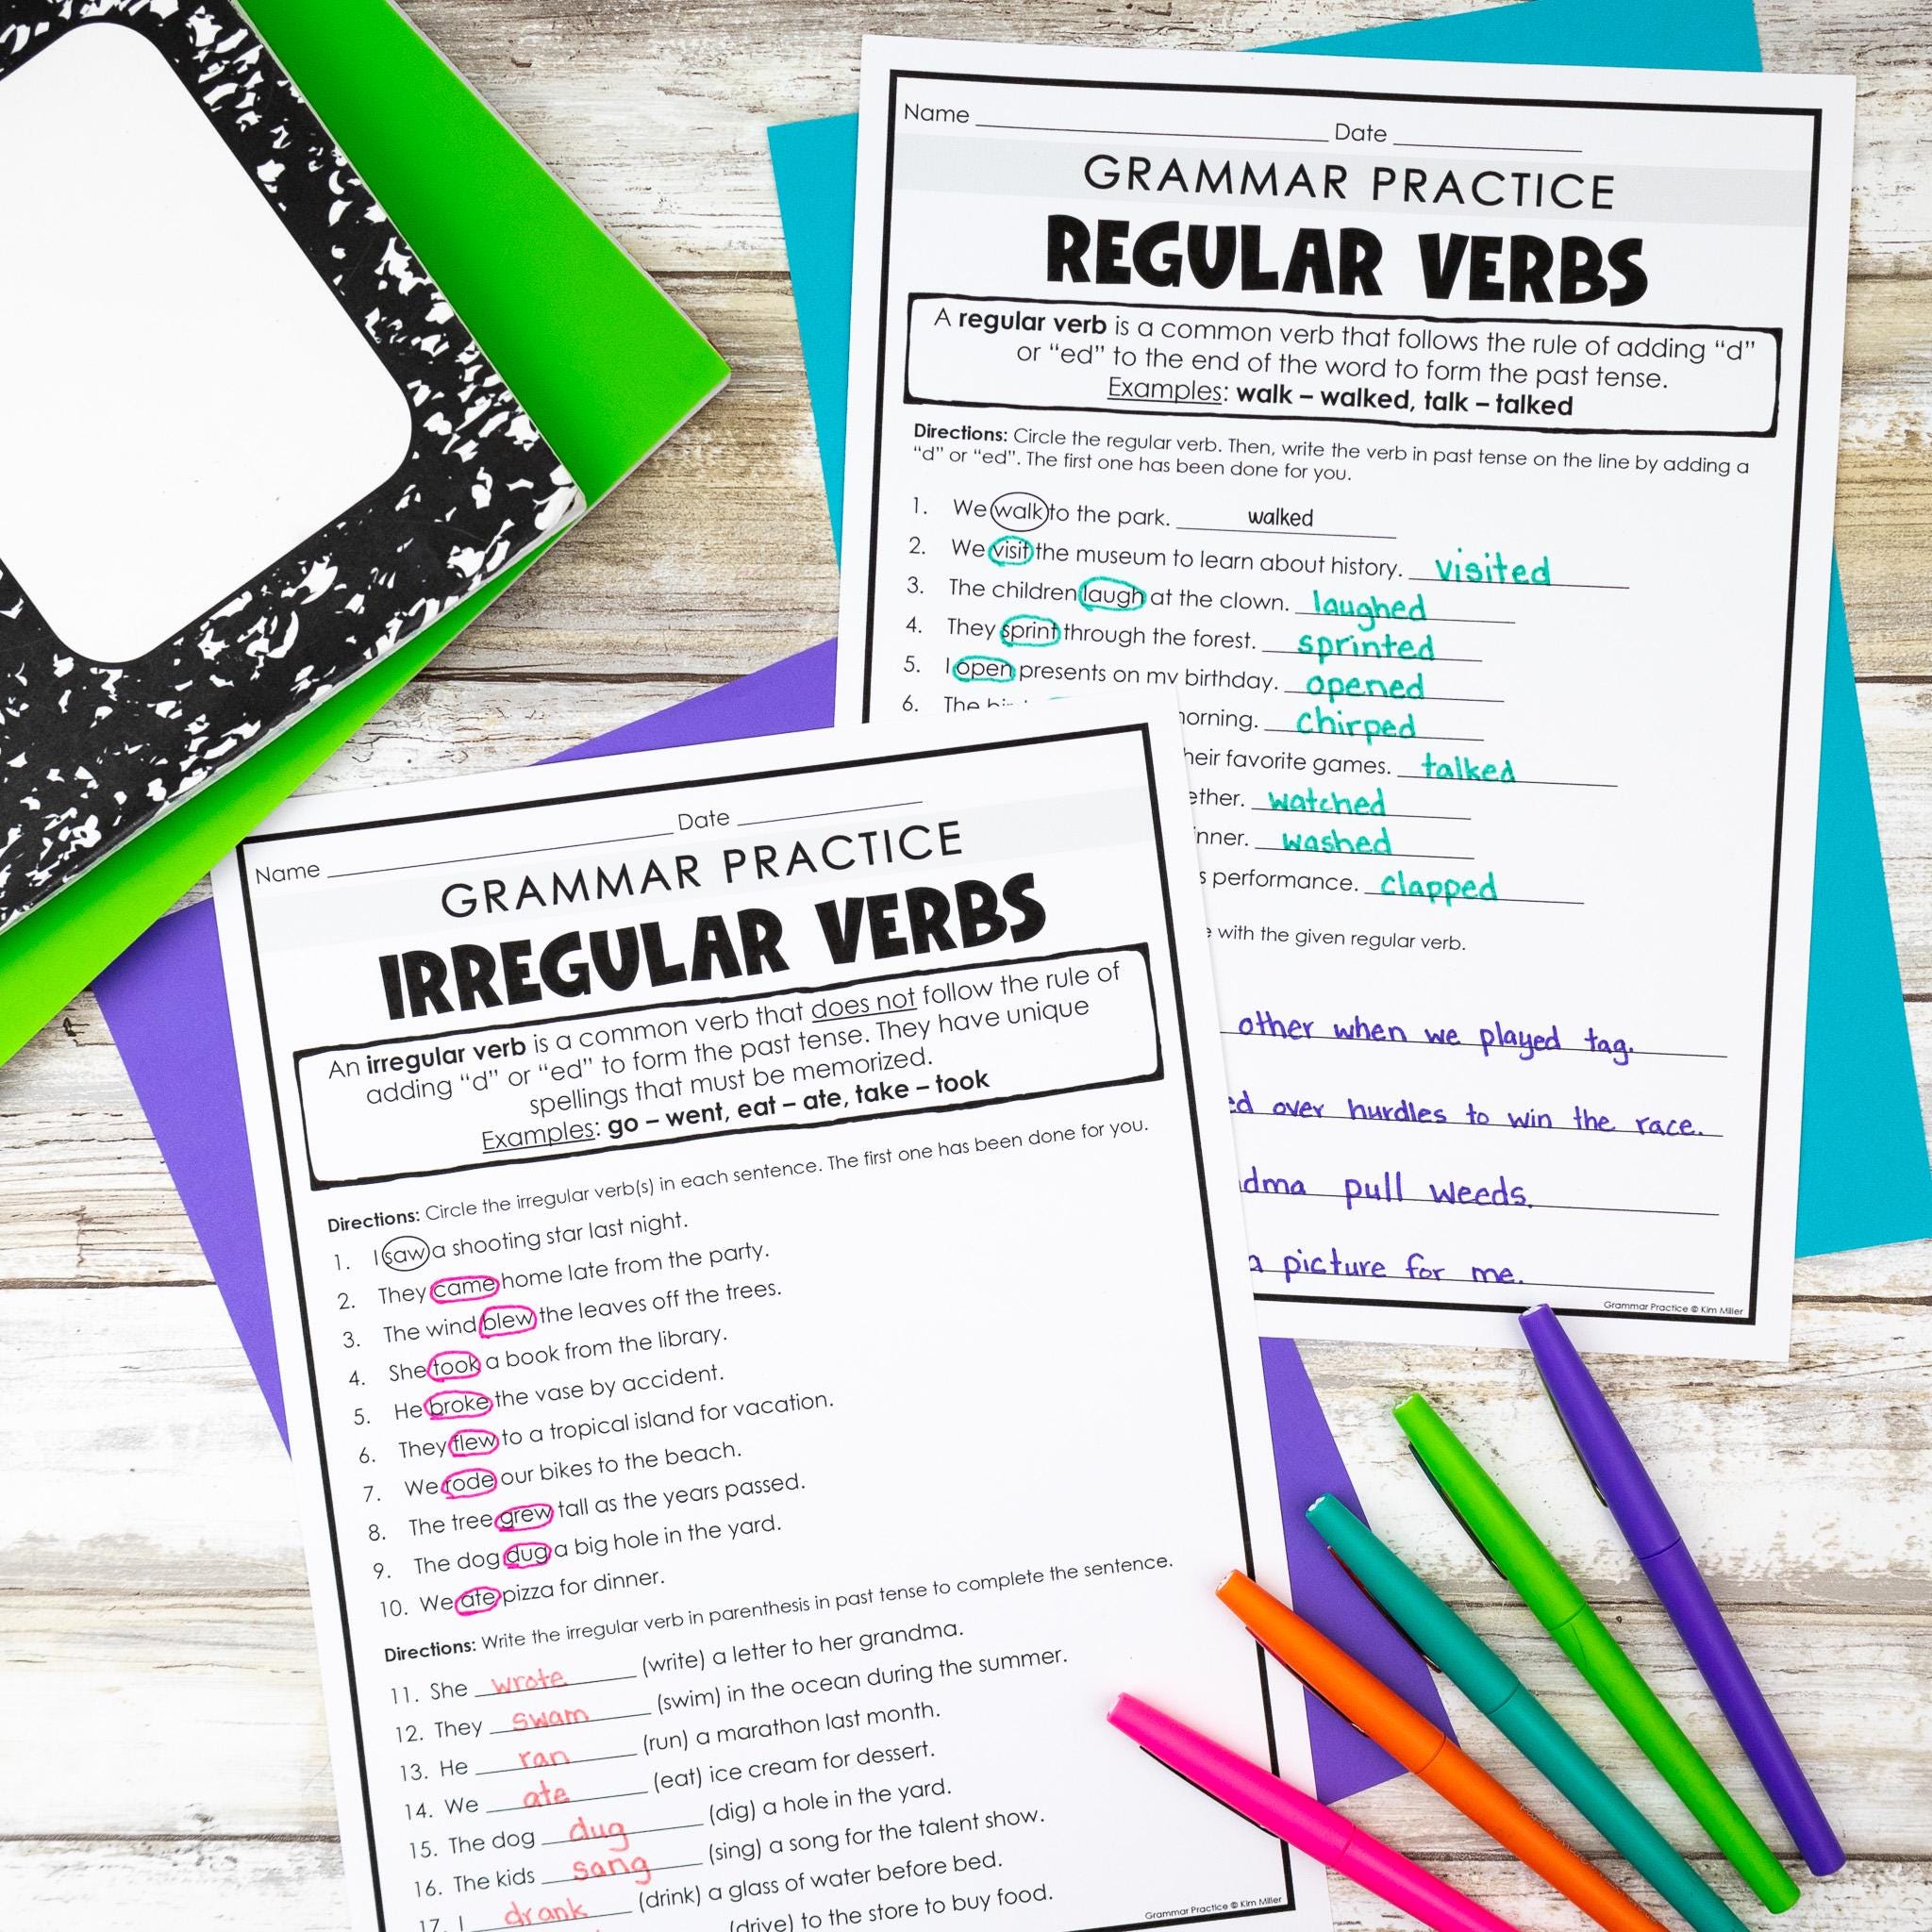 Name Date
GRAMMAR PRACTICE
REGULAR VERBS
A regular verb is a common verb that follows the rule of adding “d”
or “ed” to the end of the word to form the past tense.
Examples: walk – walked, talk – talked
Directions: Circle the regular verb. Then, write the verb in past tense on the line by adding a
“d” or “ed”. The first one has been done for you.
1. We walk to the park. walked
2. We visit the museum to learn about history. visited
3. The children laugh at the clown. laughed
4. They sprint through the forest. sprinted
5. I open presents on my birthday. opened
6. The chirped
talked
favorite games.
watched
washed
performance. clapped
with the given regular verb.
other when we played tag.
over hurdles to win the race.
pull weeds.
a picture for me.
Grammar Practice © Kim Miller
Name Date
GRAMMAR PRACTICE
IRREGULAR VERBS
An irregular verb is a common verb that does not follow the rule of
adding “d” or “ed” to form the past tense. They have unique
spellings that must be memorized.
Examples: go – went, eat – ate, take – took
Directions: Circle the irregular verb(s) in each sentence. The first one has been done for you.
1. I saw a shooting star last night.
2. They came home late from the party.
3. The wind blew the leaves off the trees.
4. She took a book from the library.
5. He broke the vase by accident.
6. They flew to a tropical island for vacation.
7. We rode our bikes to the beach.
8. The tree grew tall as the years passed.
9. The dog dug a big hole in the yard.
10. We ate pizza for dinner.
Directions: Write the irregular verb in parenthesis in past tense to complete the sentence.
11. She wrote (write) a letter to her grandma.
12. They swam (swim) in the ocean during the summer.
13. He ran (run) a marathon last month.
14. We ate (eat) ice cream for dessert.
15. The dog dug (dig) a hole in the yard.
16. The kids sang (sing) a song for the talent show.
17. I drank (drink) a glass of water before bed.
(drive) to the store to buy food.
Grammar Practice © Kim Miller